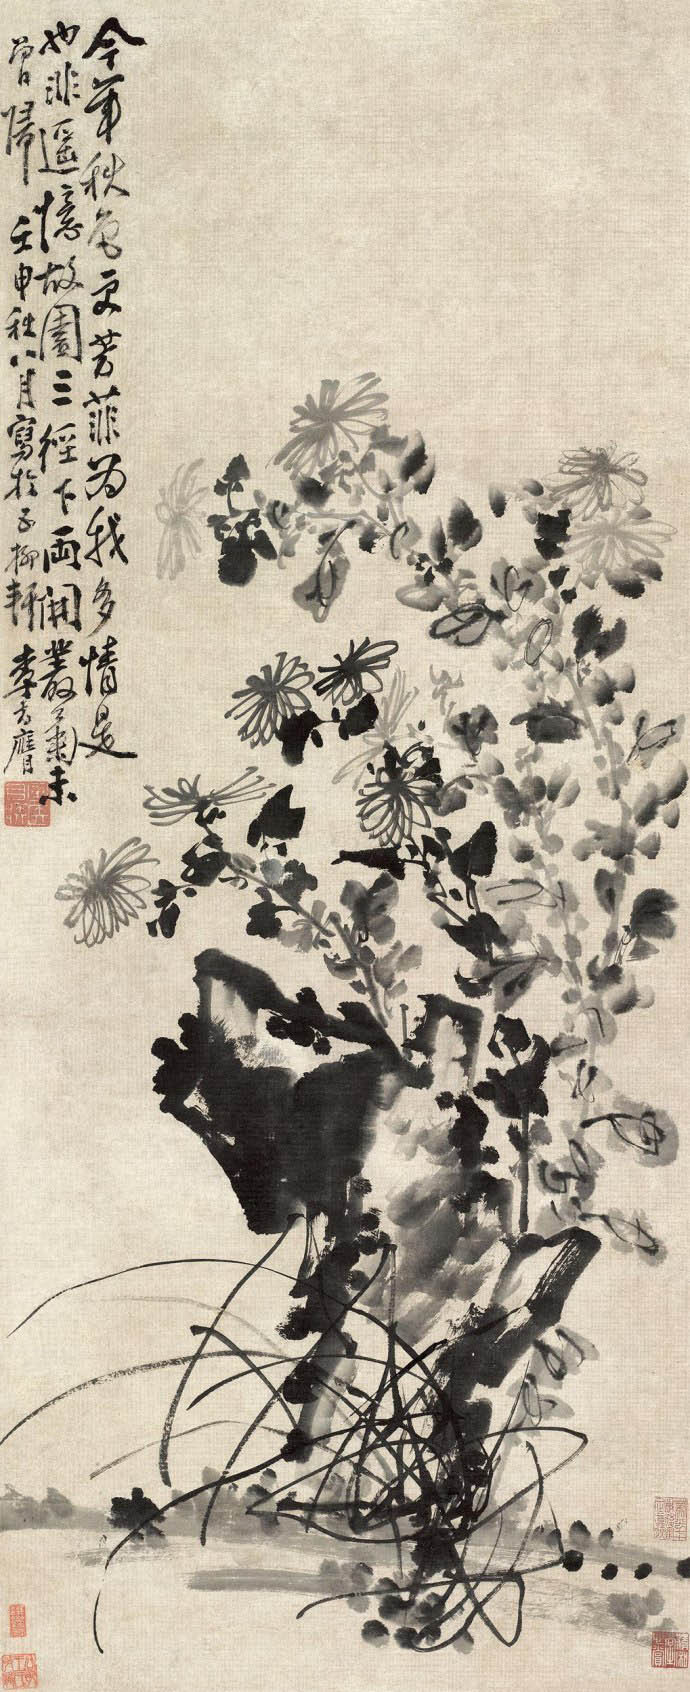 今年秋色更芳菲為我多情是
也非遙憶故園三徑下兩開叢菊未
曾歸 壬申秋八月寫於五柳軒 李方膺